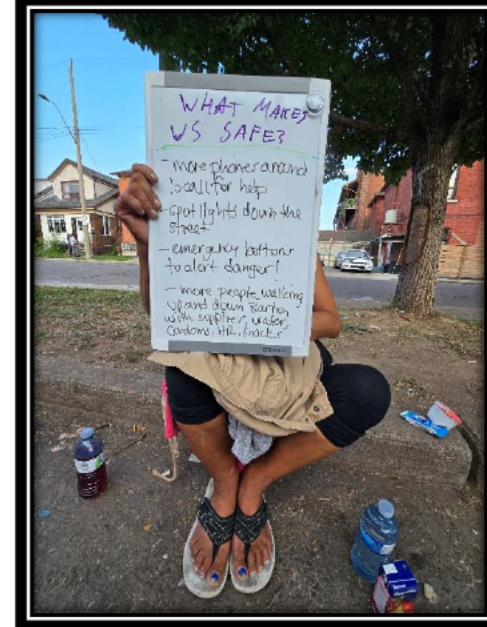 WHAT MAKES
US SAFE?
- more phones around
to call for help
- spotlights down the
street
- emergency buttons
to alert danger!
- more people walking
up and down Barton
with supplies, water,
condoms, HR, snacks